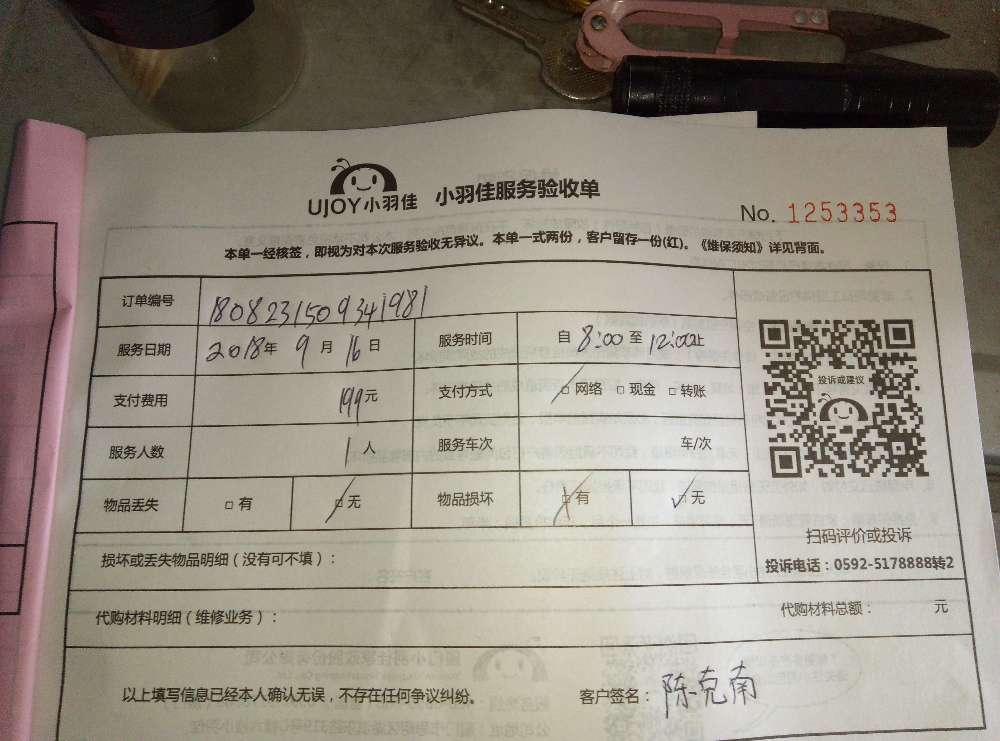 UJOY小羽佳 小羽佳服务验收单
No. 1253353
本单一经核签，即视为对本次服务验收无异议。本单一式两份，客户留存一份(红)。《维保须知》详见背面。
订单编号 1808231509341981
服务日期 2018年 9月 16日 服务时间 自 8:00 至 12:00止
支付费用 199元 支付方式 □网络 □现金 □转账
投诉或建议
服务人数 1人 服务车次 车/次
物品丢失 □有 □无 物品损坏 □有 □无
扫码评价或投诉
投诉电话：0592-5178888转2
损坏或丢失物品明细（没有可不填）：
代购材料明细（维修业务）： 代购材料总额： 元
以上填写信息已经本人确认无误，不存在任何争议纠纷。 客户签名：陈克南